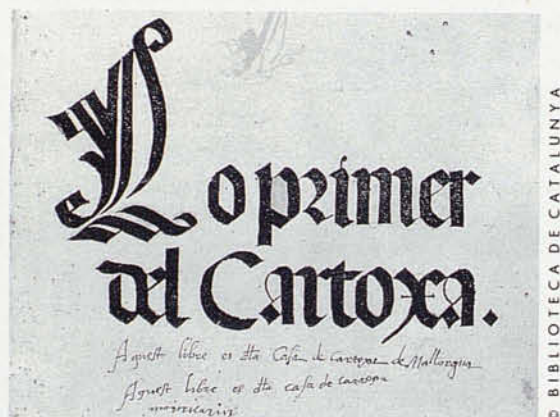 Lo primer
del Cartoxa.
Aquest libre es dla Casa de cartoxa de Mallorqua
Aquest libre es dla casa de
© BIBLIOTECA DE CATALUNYA